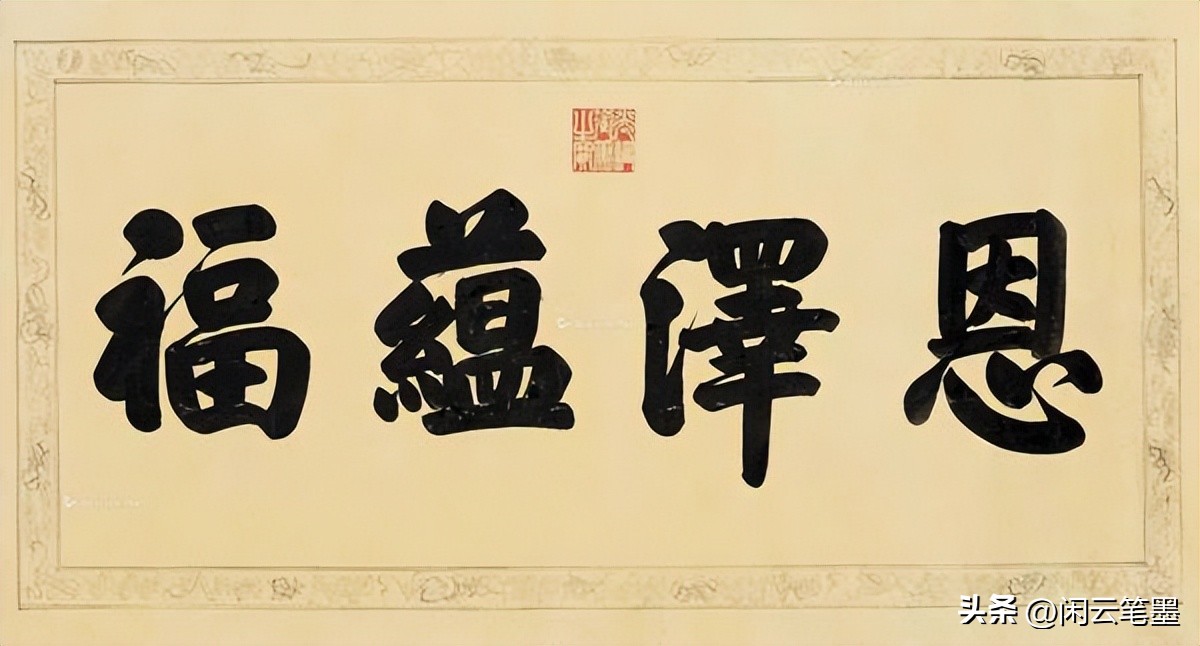 恩澤藴福
头条 @闲云笔墨